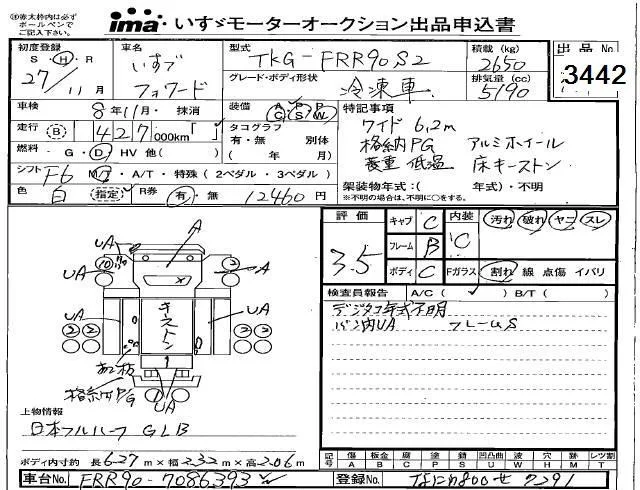 ※赤太枠内は必ずボールペンでご記入下さい。
ima・いすゞモーターオークション出品申込書
初度登録 S・H・R 27/11月
車名 いすゞ フォワード
型式 TKG-FRR90S2
積載(kg) 2650
出品No. 3442
グレード・ボディ形状 冷凍車
排気量(cc) 5190
車検 8年11月・抹消
装備 A/C P/S P/W
特記事項
走行 B 427000km「 」
タコグラフ 有・無 別体 ( 年 月)
ワイド 6.2m
格納PG アルミホイール
燃料 G・D・HV 他( )
低温 床キーストン
シフト F6 MT・A/T・特殊(2ペダル・3ペダル)
架装物年式:( 年式)・不明
※不明の場合は、不明に○をする。
色 白 (指定)
R券 有・無 12460円
評価 3.5
キャブ C
内装 C
汚れ 破れ ヤニ スレ
フレーム B
ボディ C
Fガラス 割れ 線 点傷 イバリ
検査員報告 A/C( ✓ ) B/T( )
デジタコ年式不明
バン内UA フレームS
A
UA
UA
A
UA
UA
キストン
格納P/G
UA
上物情報
日本フルハーフ GLB
ボディ内寸約 長6.27m×幅2.32m×高2.06m
記号 傷A 板金B 腐C 塗P 錆S 凹凸曲U 波W 穴H 汚M レツ割T
車台No. FRR90-7086393
登録No. なにわ800せ7291